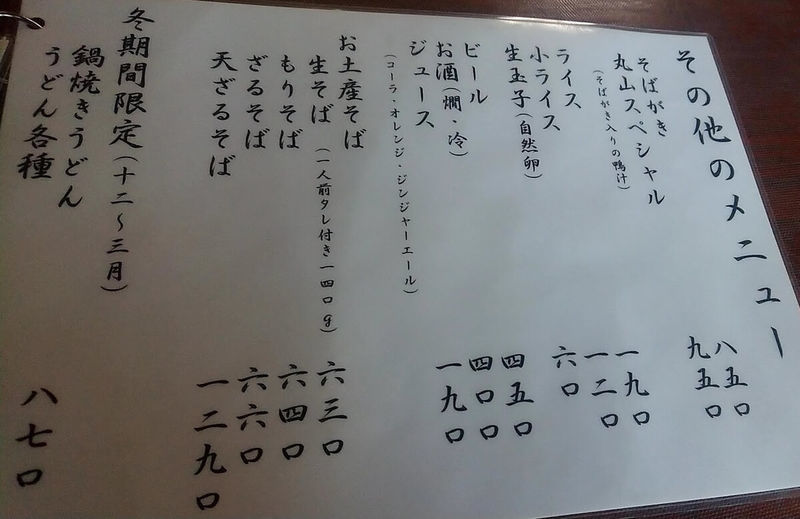 その他のメニュー
そばがき 八五〇
丸山スペシャル 九五〇
(そばがき入りの鴨汁)
ライス 一九〇
小ライス 一二〇
生玉子(自然卵) 六〇
ビール 四五〇
お酒(燗・冷) 四〇〇
ジュース 一九〇
(コーラ・オレンジ・ジンジャーエール)
お土産そば
生そば (一人前タレ付き一四〇g) 六三〇
もりそば 六四〇
ざるそば 六六〇
天ざるそば 一二九〇
冬期間限定(十二〜三月)
鍋焼きうどん 八七〇
うどん各種